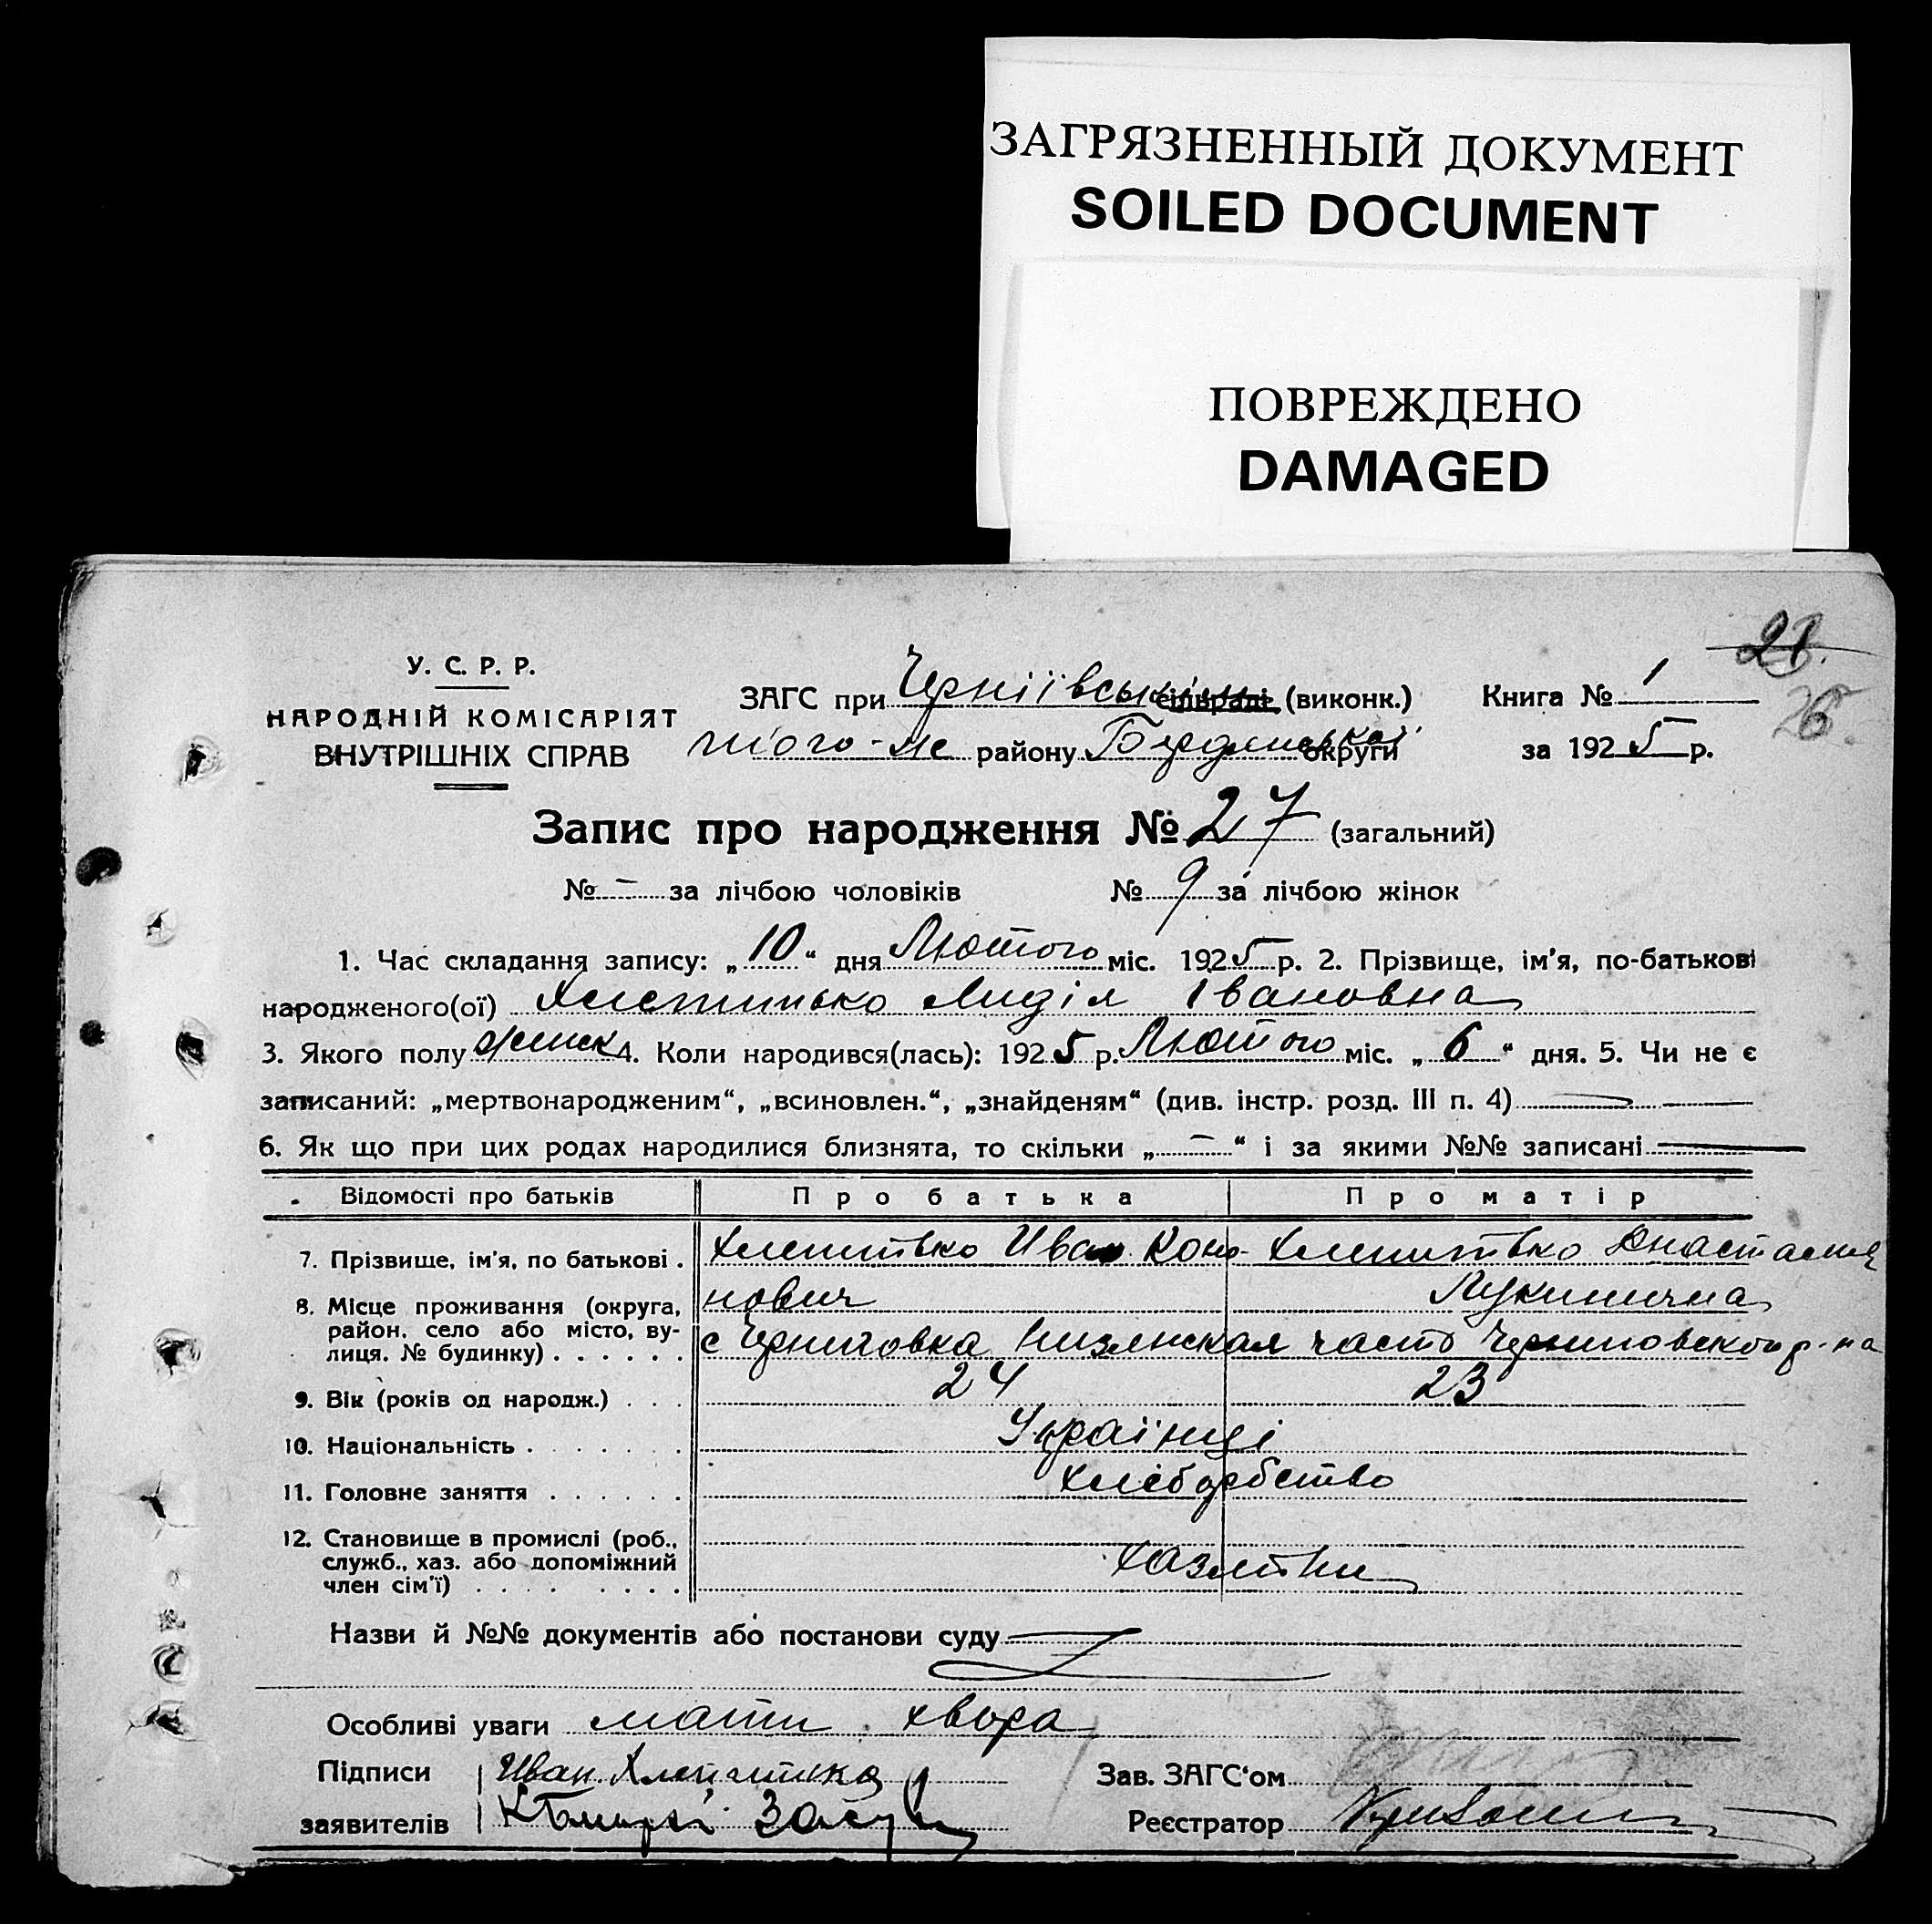 ЗАГРЯЗНЕННЫЙ ДОКУМЕНТ
SOILED DOCUMENT
ПОВРЕЖДЕНО
DAMAGED
21.
26
У. С. Р. Р.
НАРОДНІЙ КОМІСАРІЯТ
ВНУТРІШНІХ СПРАВ
ЗАГС при сільраді (виконк.) Книга № 1
того-же району Бердянської округи за 1925 р.
Запис про народження № 27 (загальний)
№ - за лічбою чоловіків № 9 за лічбою жінок
1. Час складання запису: „10“ дня Лютого міс. 1925 р. 2. Прізвище, ім'я, по-батькові
народженого(ої) Лидія Івановна
3. Якого полу женск 4. Коли народився(лась): 1925 р. Лютого міс. „6“ дня. 5. Чи не є
записаний: „мертвонародженим“, „всиновлен.“, „знайденям“ (див. інстр. розд. III п. 4)
6. Як що при цих родах народилися близнята, то скільки „-“ і за якими №№ записані
Відомості про батьків Про батька Про матір
7. Прізвище, ім'я, по батькові . Иван Коно- Анастасия
нович Лукинична
8. Місце проживання (округа, район, село або місто, вулиця, № будинку) . . . . . . с Черниговка Низянская часть Черниговского р-на
9. Вік (років од народж.) . . . 24 23
10. Національність . . . . . . . Українці
11. Головне заняття . . . . . . хліборобство
12. Становище в промислі (роб.,
служб., хаз. або допоміжний
член сім'ї) . . . . . . . . хазяїни
Назви й №№ документів або постанови суду
Особливі уваги мати хвора
Підписи Иван
заявителів
Зав. ЗАГС'ом
Реєстратор